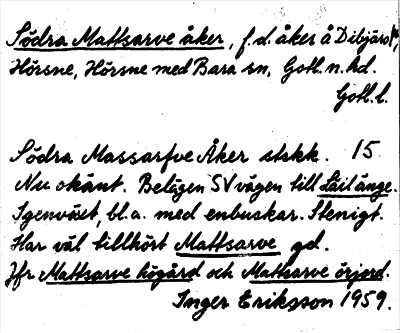 Södra Mattsarve åker, f.d. åker å Dibjärs 1⁴,
Hörsne, Hörsne med Bara sn, Gotl. n. hd.
Gotl. l.
Södra Massarfve Åker stskk. 15
Nu okänt. Belägen SV vägen till Läiläng​e.
Igenväxt, bl.a. med enbuskar. Stenigt.
Har väl tillhört Mattsarve gd.
Jfr Mattsarve högård och Mattsarve örjord.
Inger Eriksson 1959.